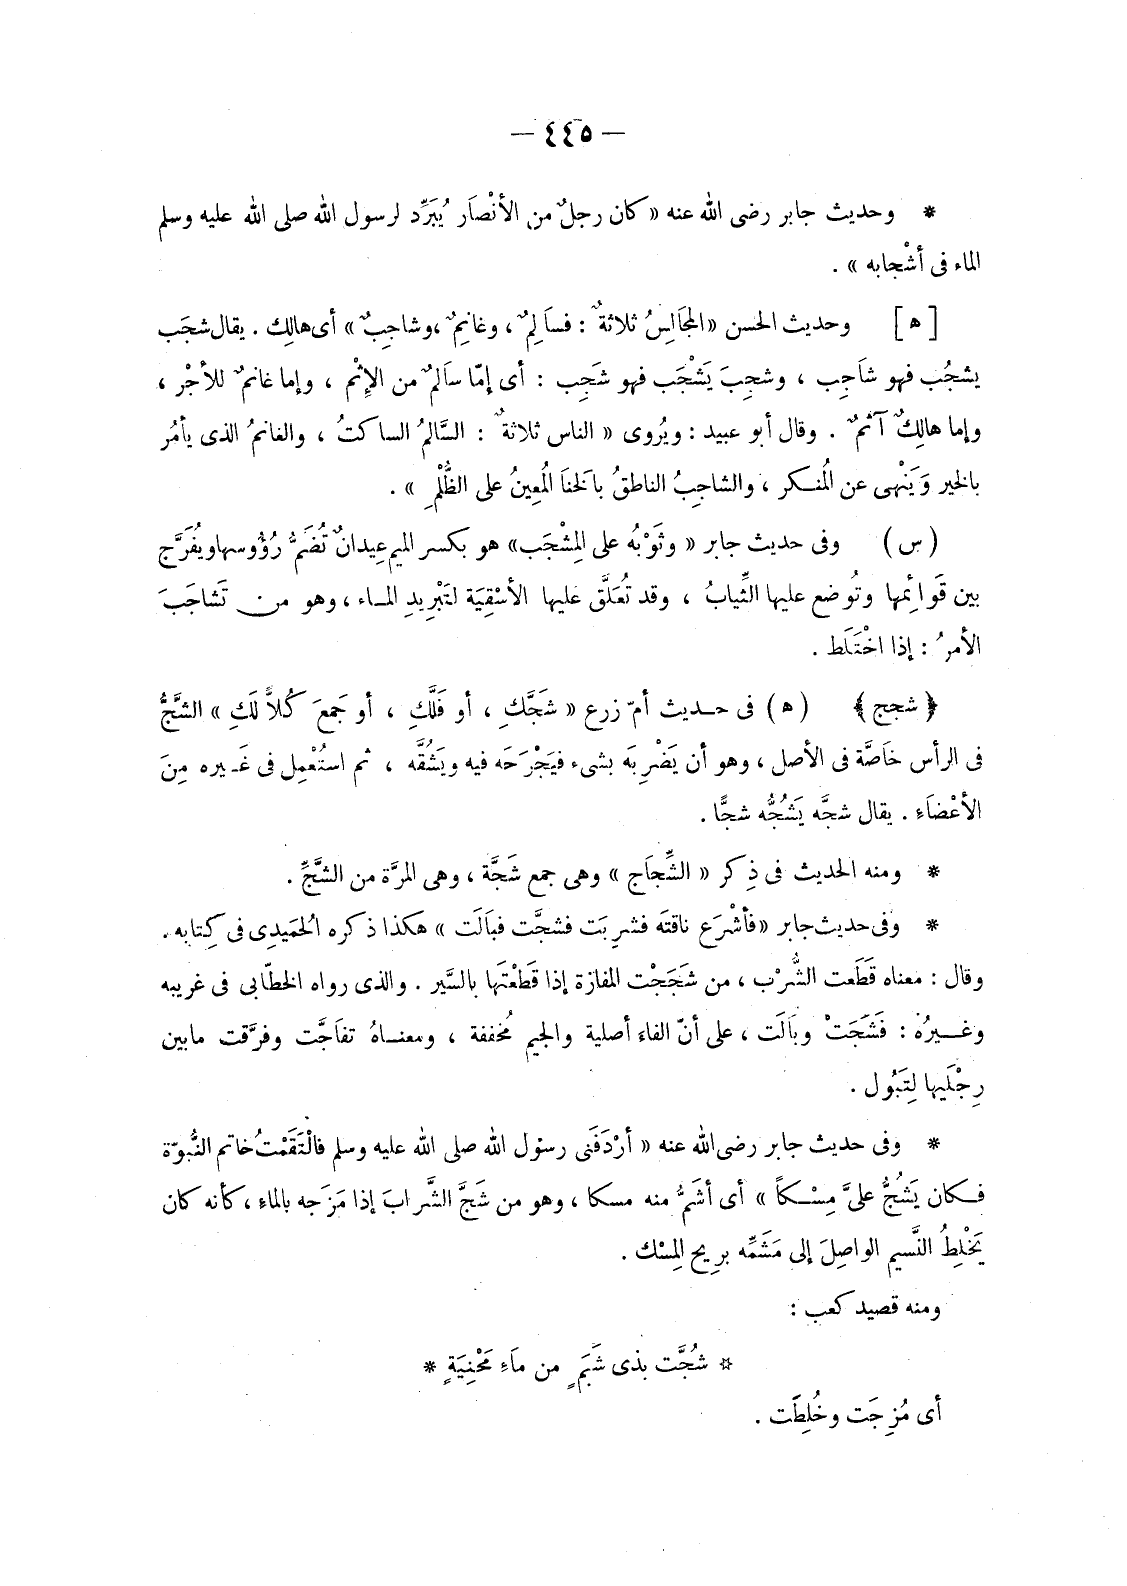 — ٤٤٥ —
* وحديث جابر رضى الله عنه « كان رجلٌ من الأنْصَار يُبَرِّد لرسول الله صلى الله عليه وسلم
الماء فى أشْجابه » .
[ ه ] وحديث الحسن « المجَالِسُ ثلاثةٌ : فسَالِمٌ ، وغانِمٌ ، وشاجِبٌ » أى هالِك . يقال شجَب
يشجُب فهو شاَجِب ، وشجِبَ يَشْجَب فهو شَجِب : أى إمّا سَالمٌ من الإِثْم ، وإما غانمٌ للأجْر ،
وإما هالِكٌ آثمٌ . وقال أبو عبيد : ويُروى « الناس ثلاثةٌ : السَّالِمُ الساكتُ ، والغانمُ الذى يأمُر
بالخير وَيَنْهى عن المُنكر ، والشاجِبُ الناطقُ بالخَنَا المُعِينُ على الظُّلْمِ » .
( س ) وفى حديث جابر « وثَوْبُه على المِشْجَب » هو بكسر الميم عِيدانٌ تُضَمُّ رُؤُوسها ويُفَرَّج
بين قَوَائِمها وتُوضع عليها الثِّيابُ ، وقد تُعَلَّق عليها الأسْقِيَة لتَبْرِيدِ المـاء ، وهو من تَشاجَبَ
الأمرُ : إذا اخْتَلَط .
﴿ شجج ﴾ ( ه ) فى حـديث أمّ زرع « شَجَّكِ ، أو فَلَّكِ ، أو جَمعَ كُلاًّ لَكِ » الشَّجُّ
فى الرأس خَاصَّة فى الأصل ، وهو أن يَضْرِبَه بشىء فيَجْرَحَه فيه ويَشُقَّه ، ثم استُعْمِل فى غـيره مِنَ
الأعْضَاءِ . يقال شجَّه يَشُجُّه شجًّا .
* ومنه الحديث فى ذِكر « الشِّجَاج » وهى جمع شَجَّة ، وهى المرَّة من الشَّجِّ .
* وفى حديث جابر « فأشْرَع ناقتَه فشرِبَت فشجَّت فبَالَت » هكذا ذكره الُحمَيدِى فى كِتابه .
وقال : معناه قَطَعت الشُّرْب ، من شَجَجْت المفازة إذا قَطَعْتَها بالسَّير . والذى رواه الخطّابى فى غريبه
وغـيرُه : فَشَجَتْ وبَالَت ، على أنّ الفاء أصلية والجيم مُخففة ، ومعنـاهُ تفاَجَّت وفرَّقت مابين
رِجْلَيها لِتَبُول .
* وفى حديث جابر رضى الله عنه « أرْدَفَنى رسول الله صلى الله عليه وسلم فالْتَقَمْتُ خاتم النُّبوّة
فـكان يَشُجُّ علىَّ مِسْـكاً » أى أشَمُّ منه مسكا ، وهو من شَجَّ الشَّرابَ إذا مَزَجه بالماءِ ، كأنه كان
يَخْلِطُ النَّسيم الواصِلَ إلى مَشَمِّه بريحِ المِسْك .
ومنه قصيد كعب :
* شُجَّت بذى شَبَمٍ من مَاءِ مَحْنِيَةٍ *
أى مُزِجَت وخُلِطَت .